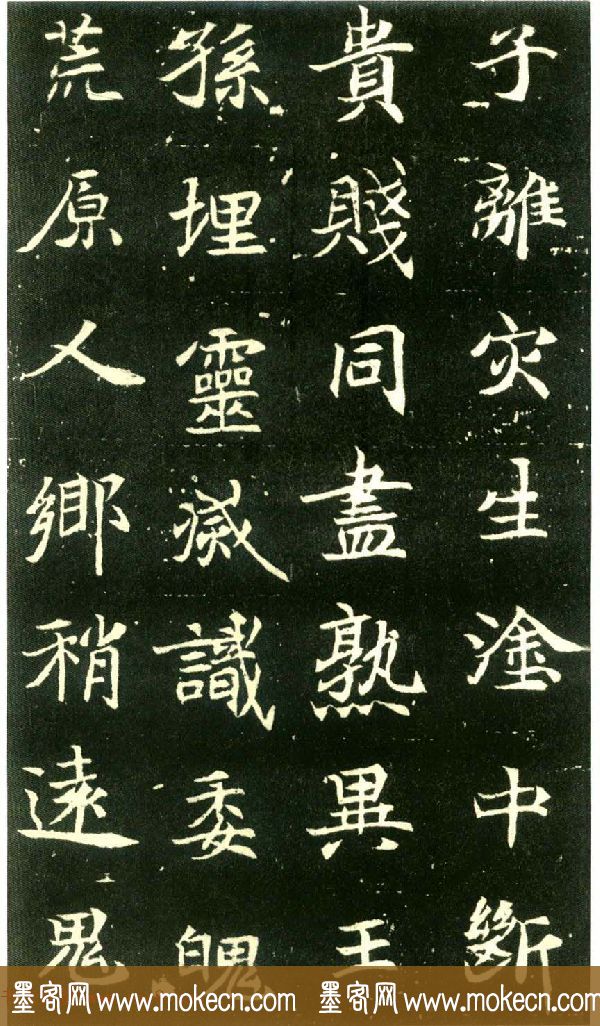 子離灾生塗中斷
貴賤同盡熟異王
孫埋靈滅識委魄
荒原人鄉稍遠鬼
墨客网 www.mokecn.com 墨客网 www.mokecn.com